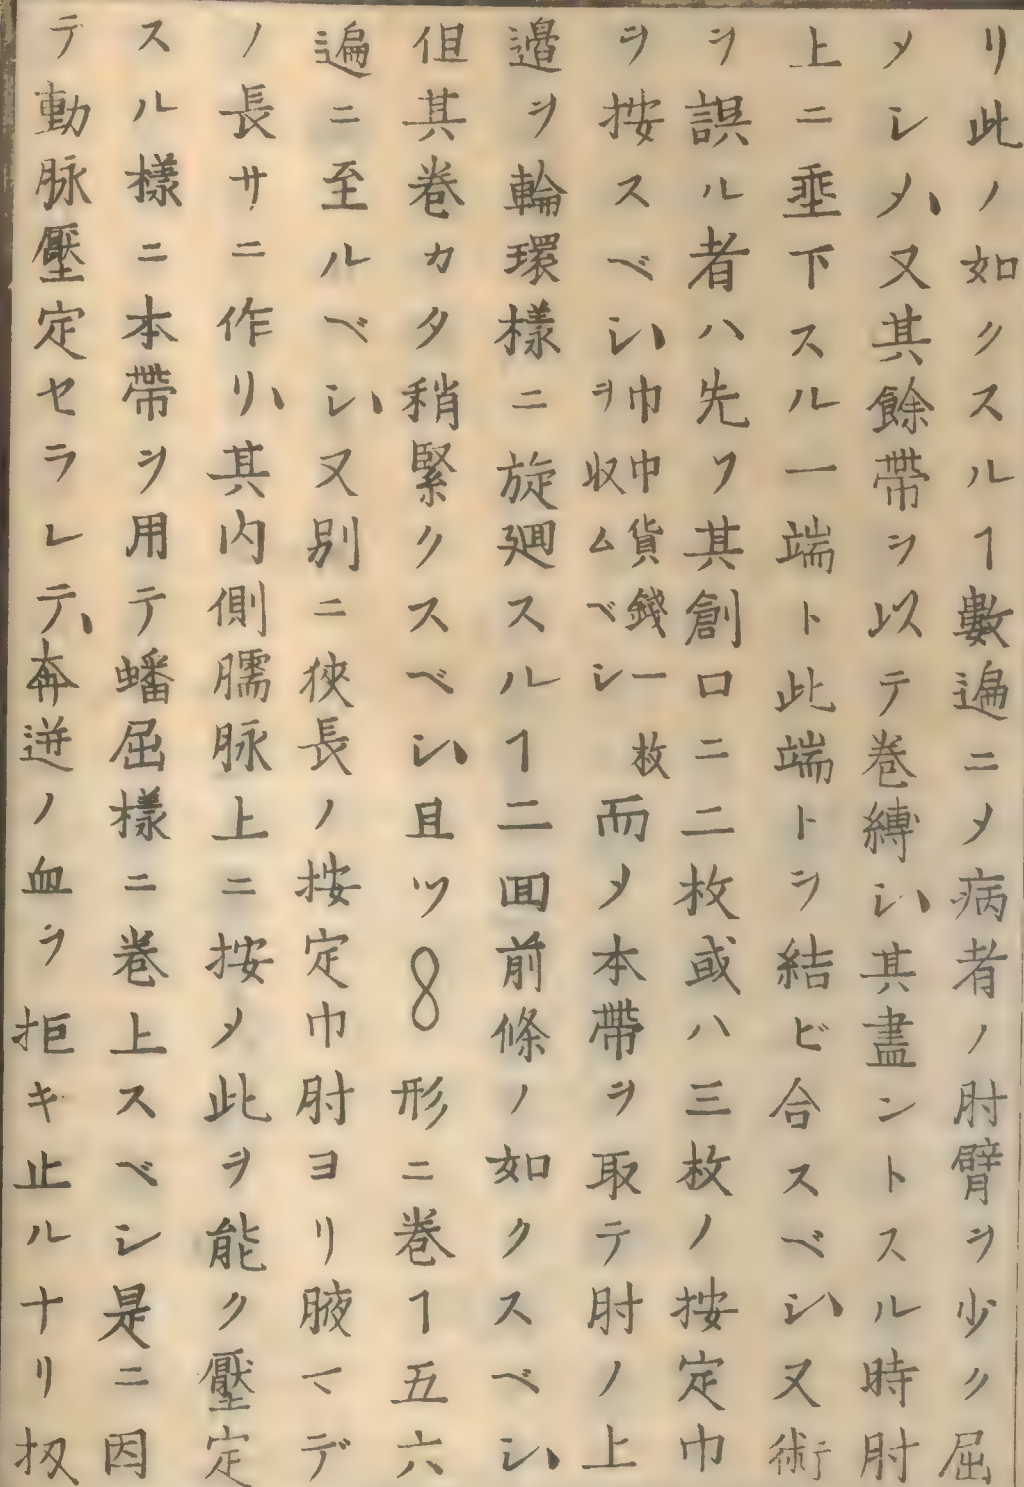 リ此ノ如クスルヿ數遍ニ〆病者ノ肘臂ヲ少ク屈
メシメ、又其餘帶ヲ以テ卷縛シ、其盡ントスル時肘
上ニ埀下スル一端ト此端トヲ結ビ合スベシ、又術
ヲ誤ル者ハ先ツ其創口ニ二枚或ハ三枚ノ按定巾
ヲ按スベシ、巾中貨錢一枚ヲ收ムベシ而〆本帶ヲ取テ肘ノ上
邉ヲ輪環樣ニ旋廻スルヿ二回前條ノ如クスベシ、
但其卷カタ稍緊クスベシ、且ツ8形ニ卷ヿ五六
遍ニ至ルベシ、又別ニ狹長ノ按定巾肘ヨリ腋マデ
ノ長サニ作リ、其内側臑脉上ニ按〆此ヲ能ク壓定
スル樣ニ本帶ヲ用テ蟠屈樣ニ卷上スベシ是ニ因
テ動脉壓定セラレテ、奔逆ノ血ヲ拒キ止ルナリ扨